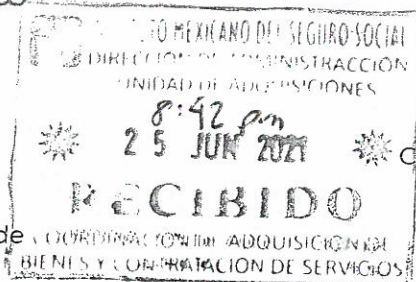 MEXICANO DEL SEGURO SOCIAL
DIRECCION DE ADMINISTRACCION
UNIDAD DE ADQUISICIONES
8:42 pm
25 JUN 2021
RECIBIDO
de
COORDINACION DE ADQUISICION DE
BIENES Y CONTRATACION DE SERVICIOS